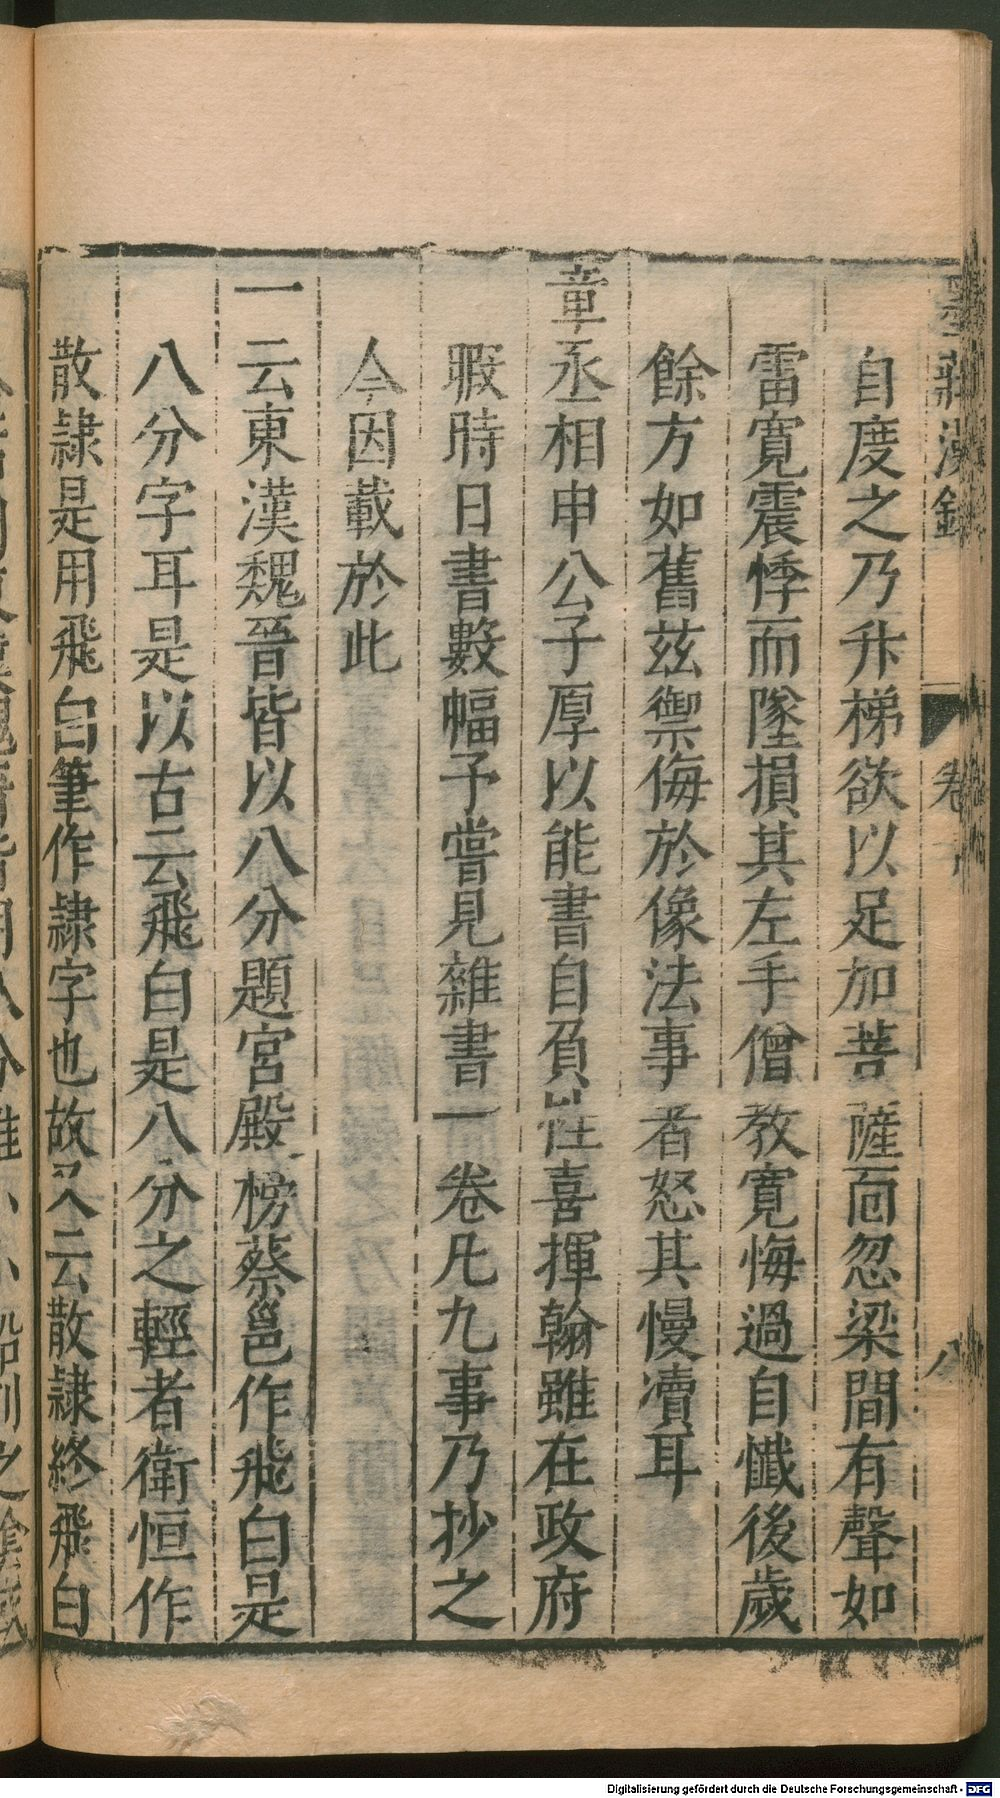 墨莊漫錄 卷 八
自度之乃升梯欲以足加菩薩面忽梁間有聲如
雷寛震悸而墜損其左手僧教寛悔過自懺後歲
餘方如舊兹禦侮於像法事者怒其慢瀆耳
章丞相申公子厚以能書自負性喜揮翰雖在政府
暇時日書數幅予嘗見雜書一卷凡九事乃抄之
今因載於此
一云東漢魏晉皆以八分題宮殿榜蔡邕作飛白是
八分字耳是以古云飛白是八分之輕者衛恒作
散隷是用飛白筆作隷字也故又云散隷終飛白
Digitalisierung gefördert durch die Deutsche Forschungsgemeinschaft - DFG